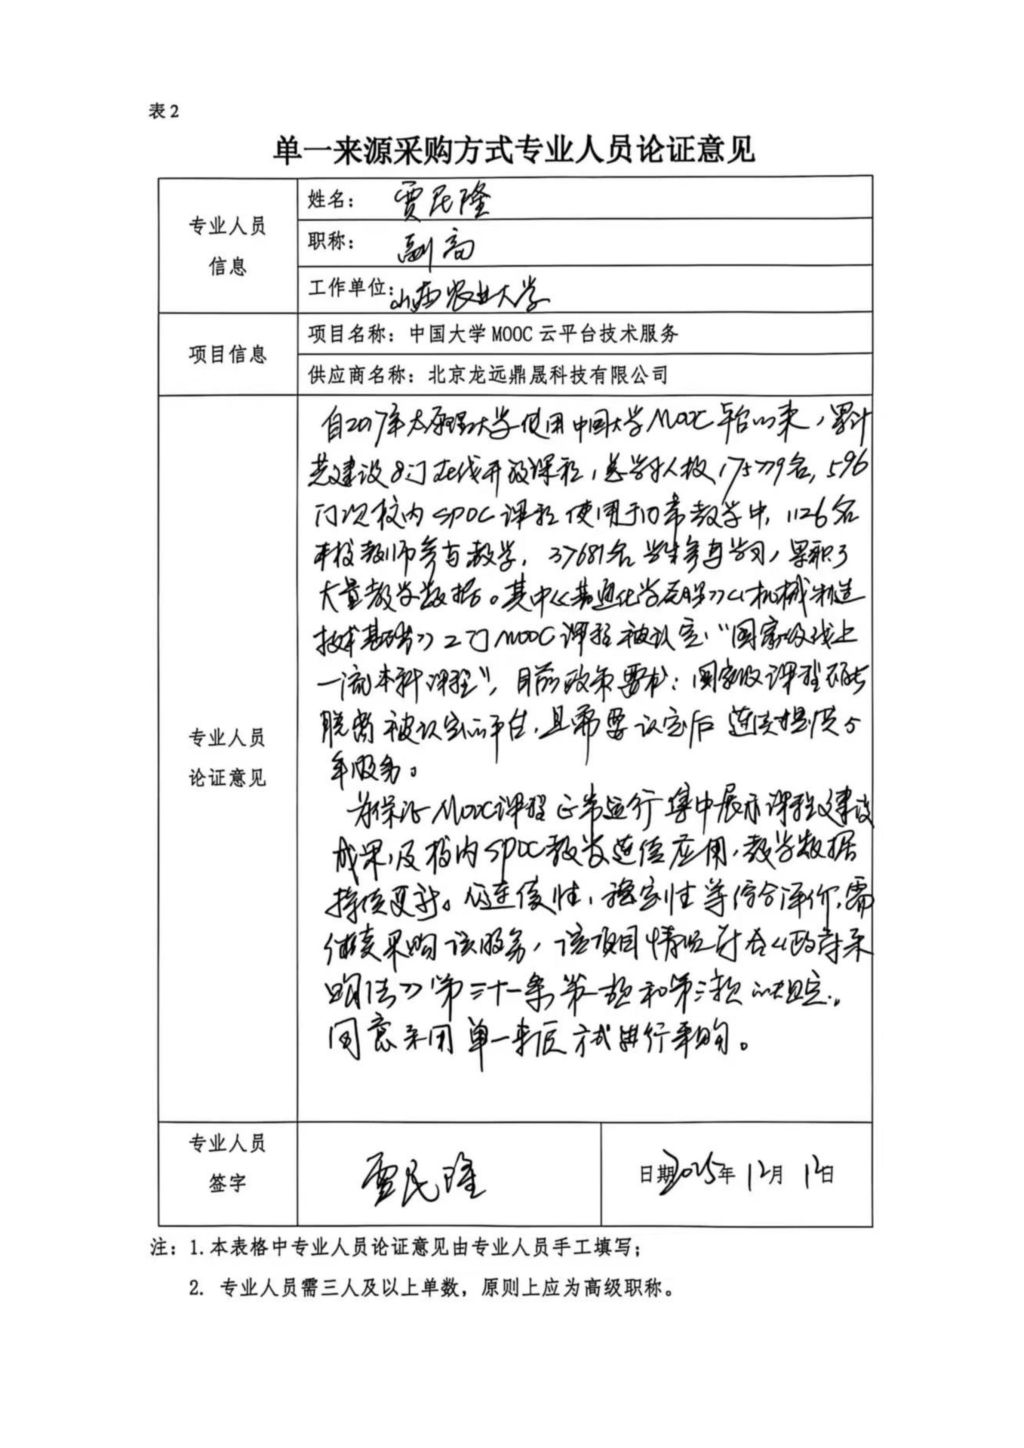 表2
单一来源采购方式专业人员论证意见
专业人员
信息
姓名： 贾民隆
职称： 副高
工作单位：山西农业大学
项目信息
项目名称：中国大学MOOC云平台技术服务
供应商名称：北京龙远鼎晟科技有限公司
专业人员
论证意见
自2017年太原理工大学使用中国大学MOOC平台以来，累计
共建设8门在线开放课程，总学习人数175779名，596
门次校内SPOC课程使用于日常教学中，1126名
本校教师参与教学，37681名学生参与学习，累积了
大量教学数据。其中《普通化学原理》《机械制造
技术基础》2门MOOC课程被认定“国家级线上
一流本科课程”，目前政策要求：国家级课程不能
脱离被认定的平台，且需要认定后连续提供5
年服务。
为保证MOOC课程正常运行集中展示课程建设
成果，及校内SPOC教学连续应用，教学数据
持续更新。从连续性，稳定性等综合评价，需
继续采购该服务，该项目情况符合《政府采
购法》第三十一条第一款和第三款的规定，
同意采用单一来源方式进行采购。
专业人员
签字
贾民隆
日期2025年12月12日
注：1.本表格中专业人员论证意见由专业人员手工填写；
2. 专业人员需三人及以上单数，原则上应为高级职称。